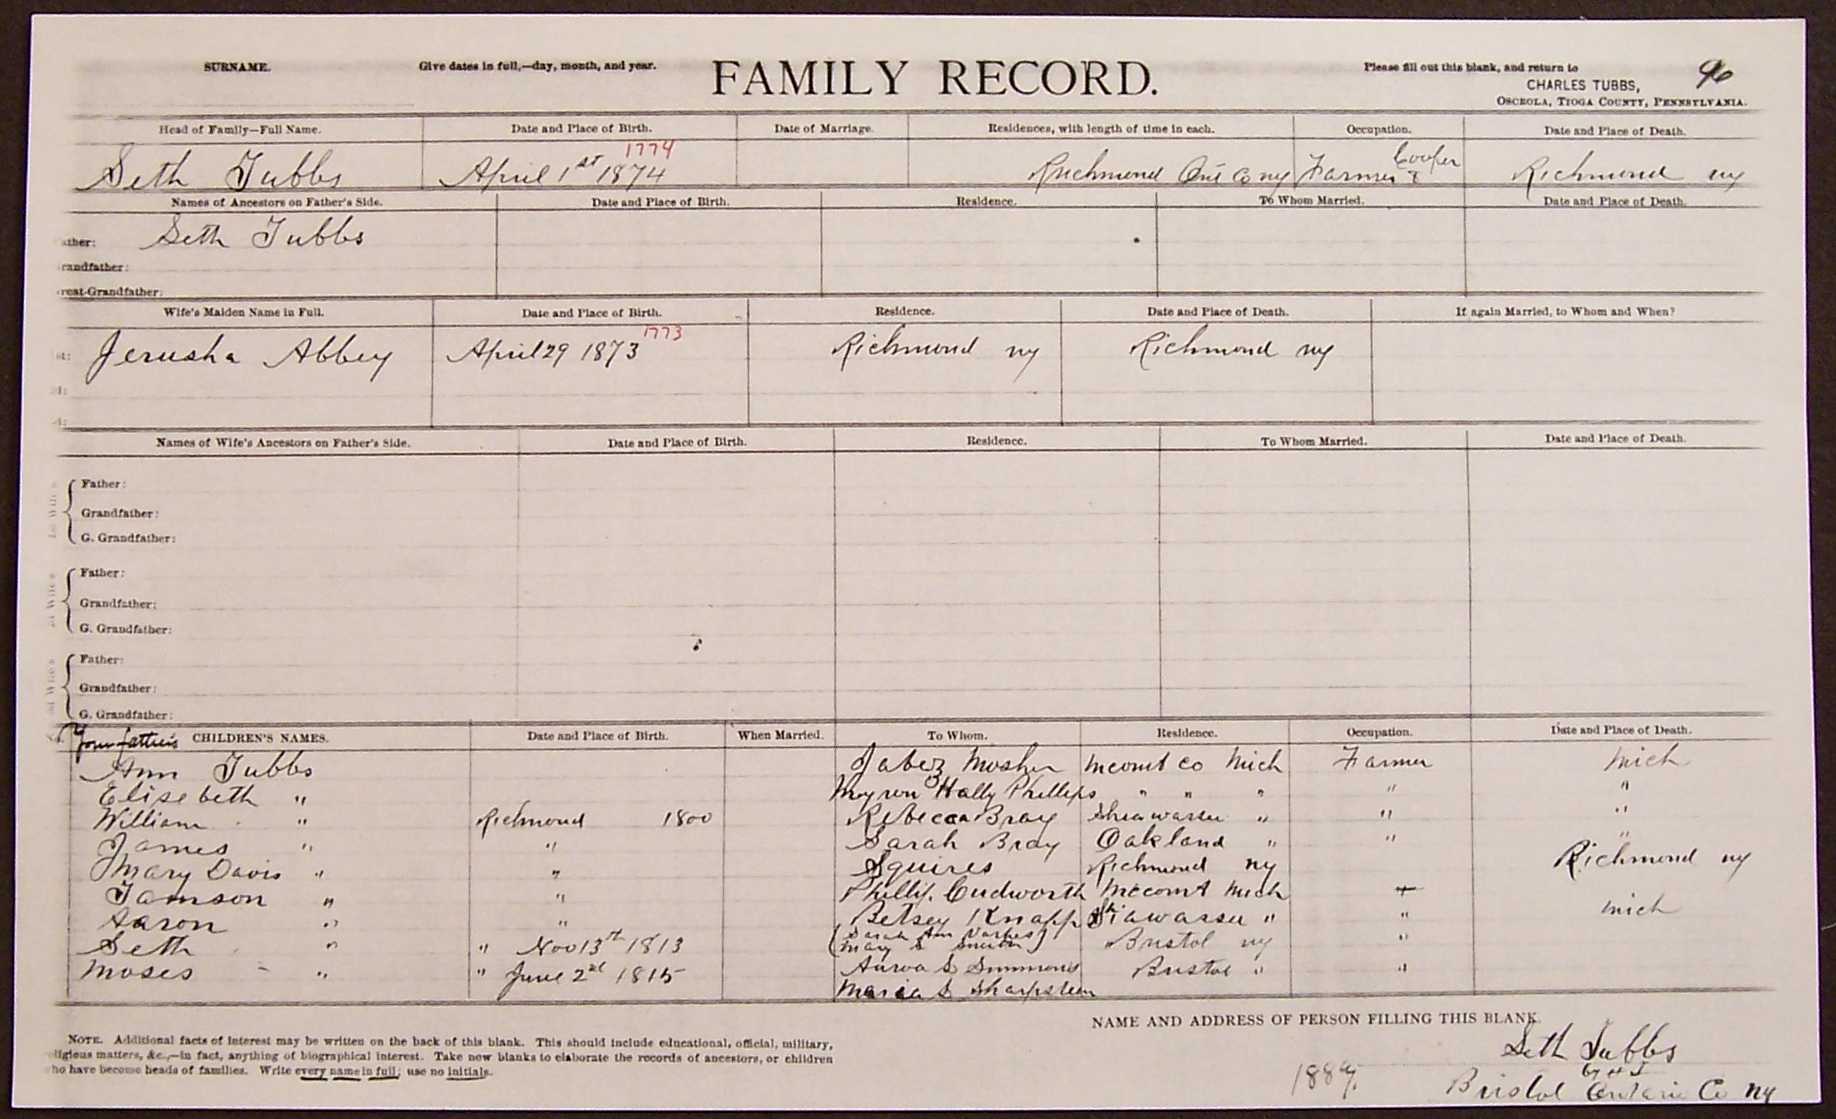 SURNAME. Give dates in full,—day, month, and year. FAMILY RECORD. Please fill out this blank, and return to 96
CHARLES TUBBS,
OSCEOLA, TIOGA COUNTY, PENNSYLVANIA.
Head of Family—Full Name. Date and Place of Birth. Date of Marriage. Residences, with length of time in each. Occupation. Date and Place of Death.
1774
Seth Tubbs April 1st 1874 Richmond Ont Co ny Farmer & Cooper Richmond ny
Names of Ancestors on Father's Side. Date and Place of Birth. Residence. To Whom Married. Date and Place of Death.
ather: Seth Tubbs
randfather:
reat-Grandfather:
Wife's Maiden Name in Full. Date and Place of Birth. Residence. Date and Place of Death. If again Married, to Whom and When?
1773
Jerusha Abbey April 29 1873 Richmond ny Richmond ny
Names of Wife's Ancestors on Father's Side. Date and Place of Birth. Residence. To Whom Married. Date and Place of Death.
Father:
Grandfather:
G. Grandfather:
Father:
Grandfather:
G. Grandfather:
Father:
Grandfather:
G. Grandfather:
Your father's CHILDREN'S NAMES. Date and Place of Birth. When Married. To Whom. Residence. Occupation. Date and Place of Death.
Ann Tubbs Jabez Mosher mcomt co Mich Farmer mich
Elisebeth " Myron Hally Phillips " " " " "
William " Richmond 1800 Rebecca Bray Shiawassee " " "
James " " Sarah Bray Oakland " " "
Mary Davis " " Squires Richmond ny Richmond ny
Tamson " " Phillip Cudworth Mccomt Mich
Aaron " " Betsey Knapp Shiawassee " " mich
Seth " " Nov 13th 1813 (Sarah Ann
Mary S Smith) Bristol ny "
Moses " " June 2nd 1815 Aurora S Simmons Bristol " "
Maria S Sharpsteen
NAME AND ADDRESS OF PERSON FILLING THIS BLANK.
NOTE. Additional facts of interest may be written on the back of this blank. This should include educational, official, military,
eligious matters, &c.,—in fact, anything of biographical interest. Take new blanks to elaborate the records of ancestors, or children
ho have become heads of families. Write every name in full; use no initials.
Seth Tubbs
1889.
Bristol Ontario Co ny